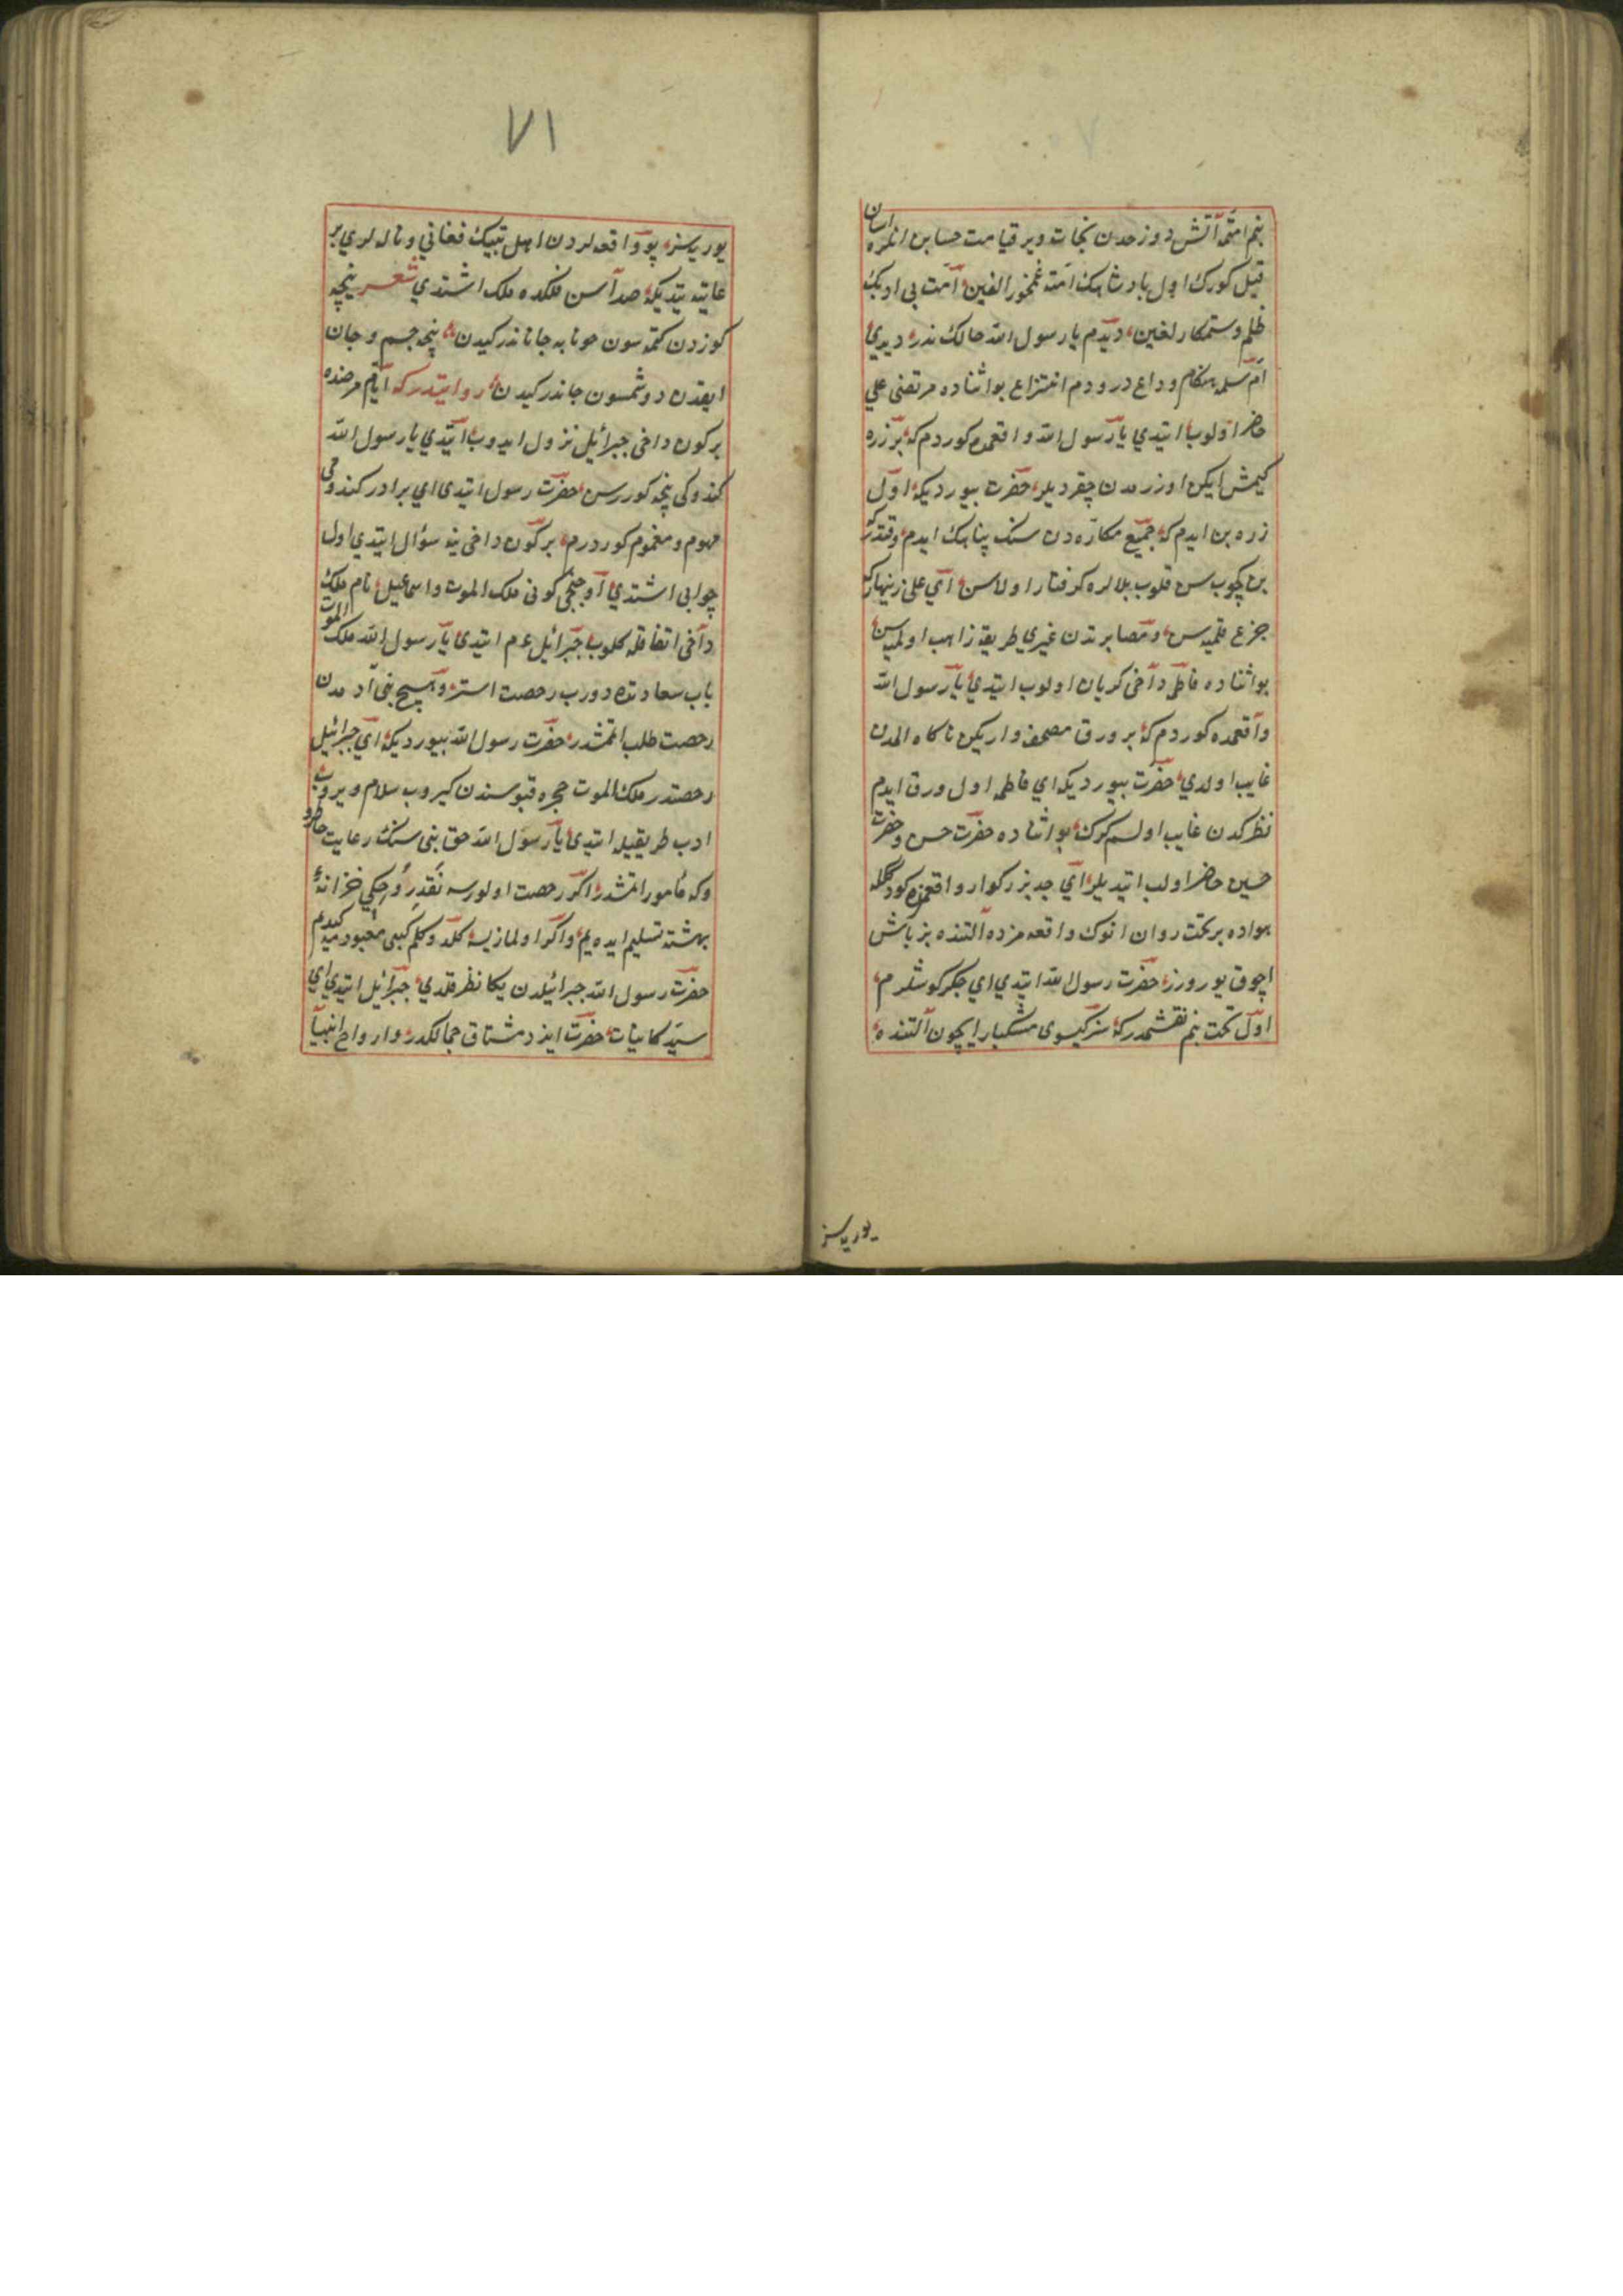 بنم امتمه آتش دوزخدن نجات ویر قیامت حسابن انلره اسان
قیل کورک اول بادشاهک امته غمخورالغین آمت بی ادبک
ظلم وستمکارلغین دیدم یا رسول الله حالک ندر دیدی
ام سلمه هنکام وداع در ودم انتزاع بو اثناده مرتضی علی
حاضر اولوب ایتدی یا رسول الله واقعمده کوردم که بر زره
کیمش ایکن اوزرمدن چقردیلر حضرت بیوردیکه اول
زره بن ایدم که جمیع مکارهدن سنک پناهک ایدم
بن کچوب سن قلوب بلالره کرفتار اولاسن ای علی زینهار که
جزع قلمیهسن ومصابرتدن غیری طریقه زاهب اولمیهسن
بو اثناده فاطمه داخی کریان اولوب ایتدی یا رسول الله
واقعمده کوردم که بر ورق مصحف واریکن ناکاه المدن
غایب اولدی حضرت بیوردیکه ای فاطمه اول ورق ایدم
نظرکدن غایب اولسم کرک بو اثناده حضرت حسن وحضرت
حسین حاضر اولب ایتدیلر ای جد بزرکوار واقعمزده کوردککه
هواده بر تخت روان انوک واقعه مزده التنده بز باش
اچوق یورورز حضرت رسول الله ایتدی ای جکرکوشلرم
اول تخت بنم نقشمدر که سز کیسوی مشکبار ایچون التنده
یوریسز
٧١
یوریسز بو واقعهلردن اهل بیتک فغانی و نالهلری بر
غایته یتدیکه صداسن فلکده ملک اشتدی شعر نیچه
کوزدن کتمهسون حونابه جاناندر کیدن نیجه جسم و جان
ایغدن دوشمسون جاندر کیدن روایتدرکه ایام مرضده
بر کون داخی جبرائیل نزول ایدوب ایتدی یا رسول الله
کندوکی نیجه کوررسن حضرت رسول ایتدی ای برادر کندومی
مهوم و مغموم کوردرم بر کون داخی ینه سؤال ایتدی اول
جوابی اشتدی اوجنجی کونی ملک الموت واسماعیل نام ملک
داخی اتفاقله کلوب جبرائیل عم ایتدی یا رسول الله ملک الموت
باب سعادتده دورب رحصت استر وهیچ بنی آدمدن
رحصت طلب اتمشدر حضرت رسول الله بیوردیکه ای جبرائیل
رحصتدر ملک الموت حجره قبوسندن کیروب سلام ویروب
ادب طریقیله ایتدی یا رسول الله حق بنی سنک رعایت خاطرو
وکه مامور اتمشدر اکر رحصت اولورسه نقد روحکی خزانهٔ
بهشته تسلیم ایدهیم واکر اولمازیسه کلدوکلم کبی معبودمه کیدهیم
حضرت رسول الله جبرائیلدن یکا نظر قلدی جبرائیل ایتدی ای
سید کاینات حضرت ایزد مشتاق جمالکدر وارواح انبیا